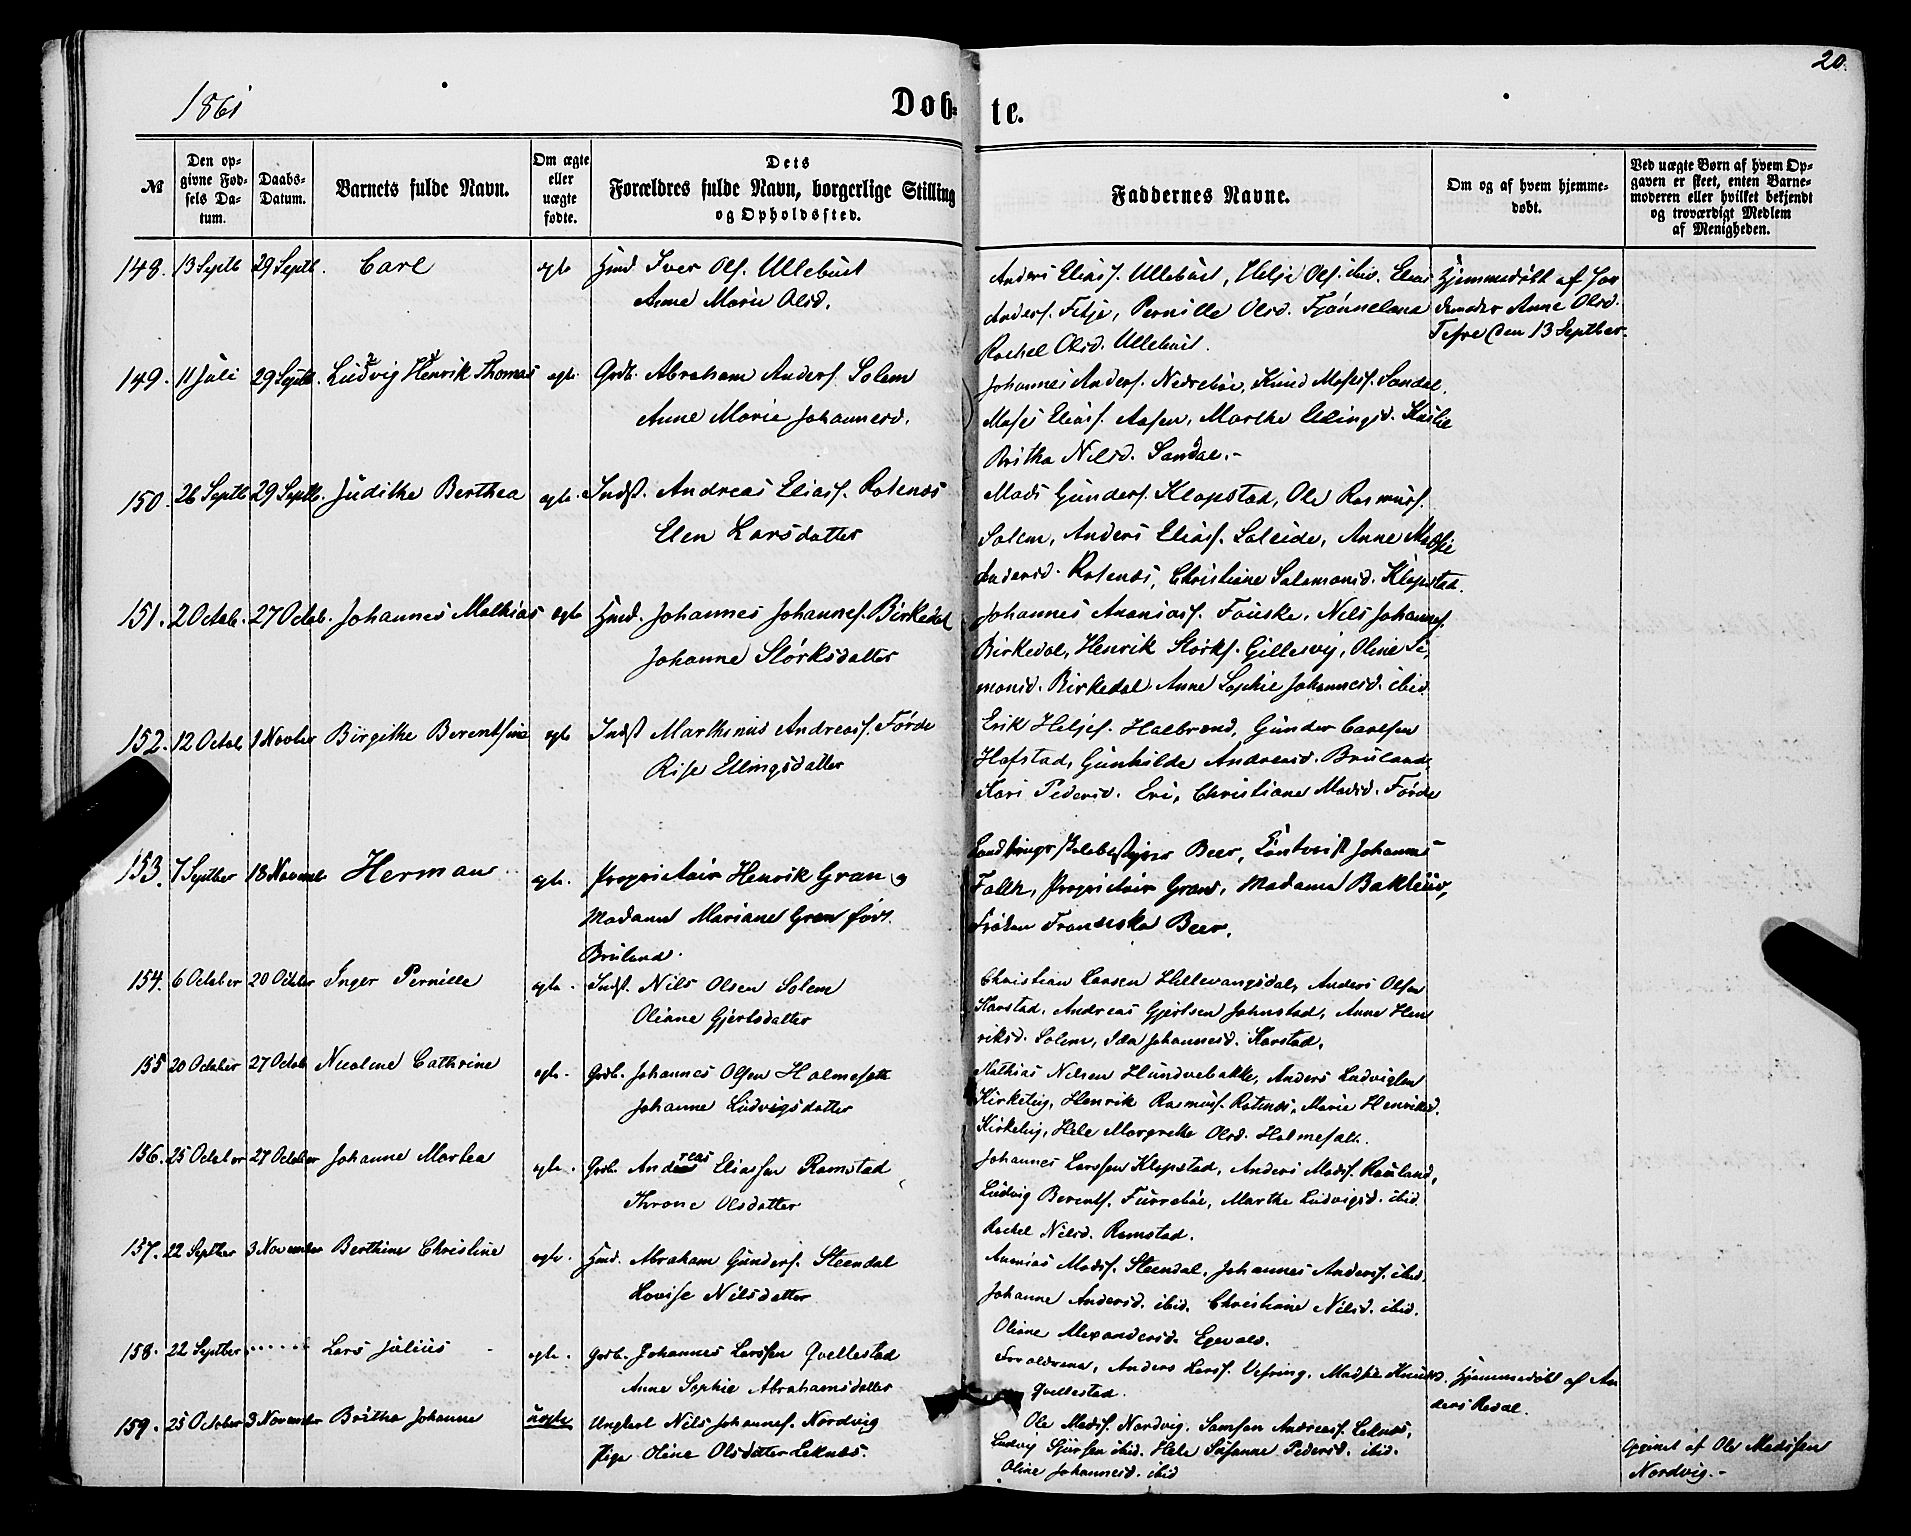 1861
20.
Døb-
te.
№
Den op-
givne Fød-
sels Da-
tum.
Daabs-
Datum.
Barnets fulde Navn.
Om ægte
eller
uægte
fødte.
Dets
Forældres fulde Navn, borgerlige Stilling
og Opholdssted.
Faddernes Navne.
Om og af hvem hjemme-
døbt.
Ved uægte Børn af hvem Op-
gaven er skeet, enten Barne-
moderen eller hvilket bekjendt
og troværdigt Medlem
af Menigheden.
148. 13 Septb 29 Septb. Carl egte Hmd. Iver Ols. Ullebust
Anne Marie Olsd.
Anders Eliass. Ullebust, Helje Ols. ibid. Elias
Anders. Fitje, Pernille Olsd.
Rachel Olsd. Ullebust.
Hjemmedøbt af Jor
demoder Anne Olsd.
den 13 Septber.
149. 11 Juli 29 Septb. Ludvig Henrik Thomas egte. Grdb. Abraham Anders. Solem
Anne Marie Johannesd.
Johannes Anders. Nedrebøe, Knud Moses. Sandal,
Moses Eliass. Aasen, Marthe Ellingsd.
Britha Nilsd. Sandal.-
150. 26 Septb 29 Septb. Judithe Berthea egte. Indst. Andreas Eliass. Rotenes
Elen Larsdatter
Mads Gunders. Klopstad, Ole Rasmuss.
Solem, Anders Eliass. Soleide, Anne
Andersd. Rotenes, Christiane Salamonsd. Klopstad.
151. 2 Octob. 27 Octob. Johannes Mathias egte Hmd. Johannes Johannes. Birkedal
Johanne Størksdatter
Johannes Ananiass. Fauske, Nils Johannes.
Birkedal, Henrik Størks. Gillesvig, Oline Si
monsd. Birkedal Anne Sophie Johannesd. ibid
152. 12 Octob 1 Novber Birgithe Berentsine egte Indst Marthinus Andreass. Førde
Rise Ellingsdatter
Erik Heljes. Halbrend, Gunder Carlsen
Hafstad, Gunhilde Andreasd. Bruland,
Kari Pedersd. Eri, Christiane Madsd. Førde
153. 7 Septber 18 Novemb Herman egte. Proprietair Henrik Gran og
Madame Mariane Gran født
Bruland.
Beer, Johannes
Falk, Proprietair Gran, Madame
Frøken Franciska Beer.
154. 6 October 20 October Inger Pernille egte. Indst. Nils Olsen Solem
Oliane Gjertsdatter
Christian Larsen Hellevangsdal, Anders Olsen
Karstad, Andreas Gjertsen Johnstad, Anne Hen
riksd. Solem, Ida Johannesd. Karstad.
155 20 October 27 Octob Nicoline Cathrine egte. Grdb. Johannes Olsen Holmesett
Johanne Ludvigsdatter
Mathias Nilsen Hundvebakke, Anders Ludvigsen
Kirketeig, Henrik Rasmuss. Rotenes, Marie Henriksd.
Kirketeig, Hele Margrethe Olsd. Holmesatt.
156. 25 October 27 October Johanne Martea egte. Grdb. Andreas Eliassen Ramstad
Throne Olsdatter
Johannes Larssen Klopstad, Anders Madss. Rauland,
Ludvig Berents. Furrebøe, Marthe Ludvigsd. ibid.
Rachel Nilsd. Ramstad.
157. 22 Septber 3 November Berthine Christine egte. Hmd. Abraham Gunders. Steendal
Lovise Nilsdatter
Ananias Madss. Steendal, Johannes Anders. ibid.
Johanne Andersd. ibid. Christiane Nilsd. ibid.
Oliane Alexandersd.
158. 22 Septber ...... Lars Julius egte. Grdb. Johannes Larssen Qvellestad
Anne Sophie Abrahamsdatter
Forældrene, Anders Larss. Vefring, Madsie Knuds.
Qvellestad.
Hjemmedøbt af An
ders
159. 25 October 3 November Britha Johanne uegte Ungkarl Nils Johannes. Nordvig
Pige Oline Olsdatter Leknes.
Ole Madss. Nordvig. Samson Andreass. Leknes,
Ludvig ibid. Hele Susanne Pedersd. ibid.
Oline Johannesd. ibid
Opgivet af Ole Madssen
Nordvig.-